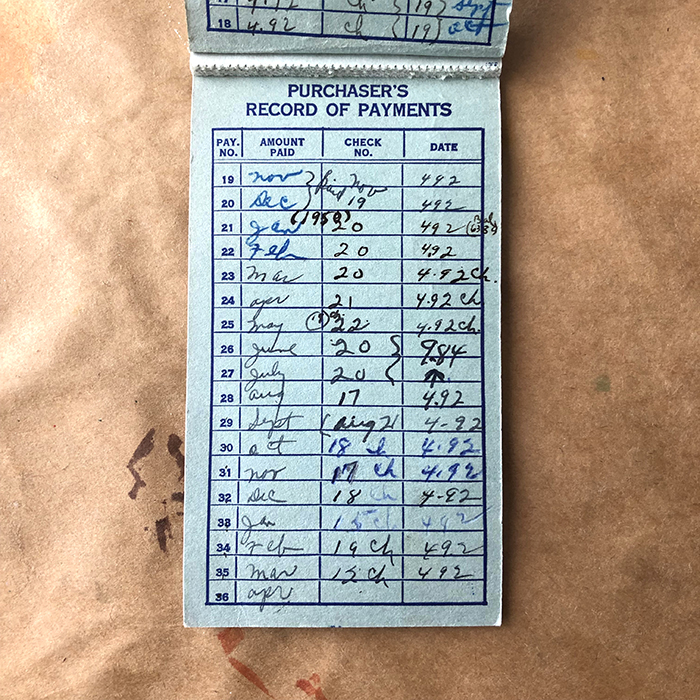 18 4.92 ch (19) oct
PURCHASER'S
RECORD OF PAYMENTS
PAY. NO. AMOUNT PAID CHECK NO. DATE
19 nov Paid Nov 492
20 Dec 19 492
(1958)
21 Jan 20 492
22 Feb 20 492
23 Mar 20 4.92 Ch.
24 apr 21 4.92 Ch
25 may 22 4.92 ch.
26 June 20 9.84
27 July 20 ↑
28 aug 17 4.92
29 Sept (aug 21 4-92
30 oct 18 ch 4.92
31 nov 17 ch 4.92
32 Dec 18 ch 4-92
33 Jan 15 ch 492
34 Feb 19 ch 492
35 Mar 15 ch 492
36 apr